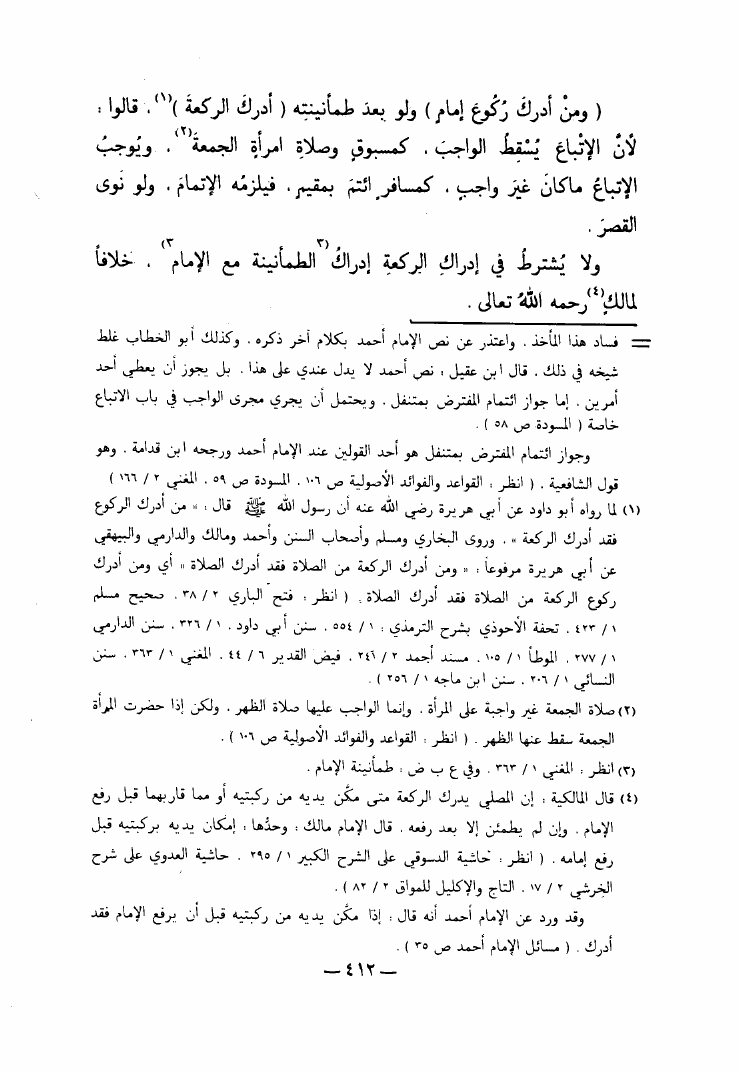 ( ومنْ أدركَ رُكُوعَ إمام ) ولو بعدَ طمأنينته ( أدركَ الركعةَ )(١) ، قالوا :
لأنَّ الإتْباعَ يُسْقِطُ الواجبَ ، كمسبوقٍ وصلاةِ امرأةٍ الجمعةَ(٢) ، ويُوجبُ
الإتباعُ ماكانَ غيرَ واجبٍ ، كمسافرٍ ائتمَ بمقيمٍ ، فيلزمُه الإتمامَ ، ولو نَوى
القصرَ .
ولا يُشترطُ في إدراكِ الركعةِ إدراكُ (٣)الطمأنينة مع الإمام(٣) ، خلافاً
لمالكٍ(٤)رحمه اللهُ تعالى .
= فساد هذا المأخذ . واعتذر عن نص الإمام أحمد بكلام آخر ذكره . وكذلك أبو الخطاب غلط
شيخه في ذلك . قال ابن عقيل : نص أحمد لا يدل عندي على هذا . بل يجوز أن يعطي أحد
أمرين . إما جواز ائتمام المفترض بمتنفل . ويحتمل أن يجري مجرى الواجب في باب الاتباع
خاصة ( المسودة ص ٥٨ ) .
وجواز ائتمام المفترض بمتنفل هو أحد القولين عند الإمام أحمد ورجحه ابن قدامة . وهو
قول الشافعية . ( انظر : القواعد والفوائد الأصولية ص ١٠٦ . المسودة ص ٥٩ . المغني ٢ / ١٦٦ )
(١) لما رواه أبو داود عن أبي هريرة رضي الله عنه أن رسول الله ﷺ قال : « من أدرك الركوع
فقد أدرك الركعة » . وروى البخاري ومسلم وأصحاب السنن وأحمد ومالك والدارمي والبيهقي
عن أبي هريرة مرفوعاً : « ومن أدرك الركعة من الصلاة فقد أدرك الصلاة » أي ومن أدرك
ركوع الركعة من الصلاة فقد أدرك الصلاة . ( انظر : فتح الباري ٢ / ٣٨ . صحيح مسلم
١ / ٤٢٣ . تحفة الأحوذي بشرح الترمذي : ١ / ٥٥٤ . سنن أبي داود . ١ / ٣٢٦ . سنن الدارمي
١ / ٢٧٧ . الموطأ ١ / ١٠٥ . مسند أحمد ٢ / ٢٤٦ . فيض القدير ٦ / ٤٤ . المغني ١ / ٣٦٣ . سنن
النسائي ١ / ٢٠٦ . سنن ابن ماجه ١ / ٢٥٦ ) .
(٢) صلاة الجمعة غير واجبة على المرأة . وإنما الواجب عليها صلاة الظهر . ولكن إذا حضرت المرأة
الجمعة سقط عنها الظهر . ( انظر : القواعد والفوائد الأصولية ص ١٠٦ ) .
(٣) انظر : المغني ١ / ٣٦٣ . وفي ع ب ض : طمأنينة الإمام .
(٤) قال المالكية : إن المصلي يدرك الركعة متى مكّن يديه من ركبتيه أو مما قاربهما قبل رفع
الإمام . وإن لم يطمئن إلا بعد رفعه . قال الإمام مالك : وحدُّها : إمكان يديه بركبتيه قبل
رفع إمامه . ( انظر : حاشية الدسوقي على الشرح الكبير ١ / ٢٩٥ . حاشية العدوي على شرح
الخرشي ٢ / ١٧ . التاج والإكليل للمواق ٢ / ٨٢ ) .
وقد ورد عن الإمام أحمد أنه قال : إذا مكّن يديه من ركبتيه قبل أن يرفع الإمام فقد
أدرك . ( مسائل الإمام أحمد ص ٣٥ ) .
— ٤١٢ —